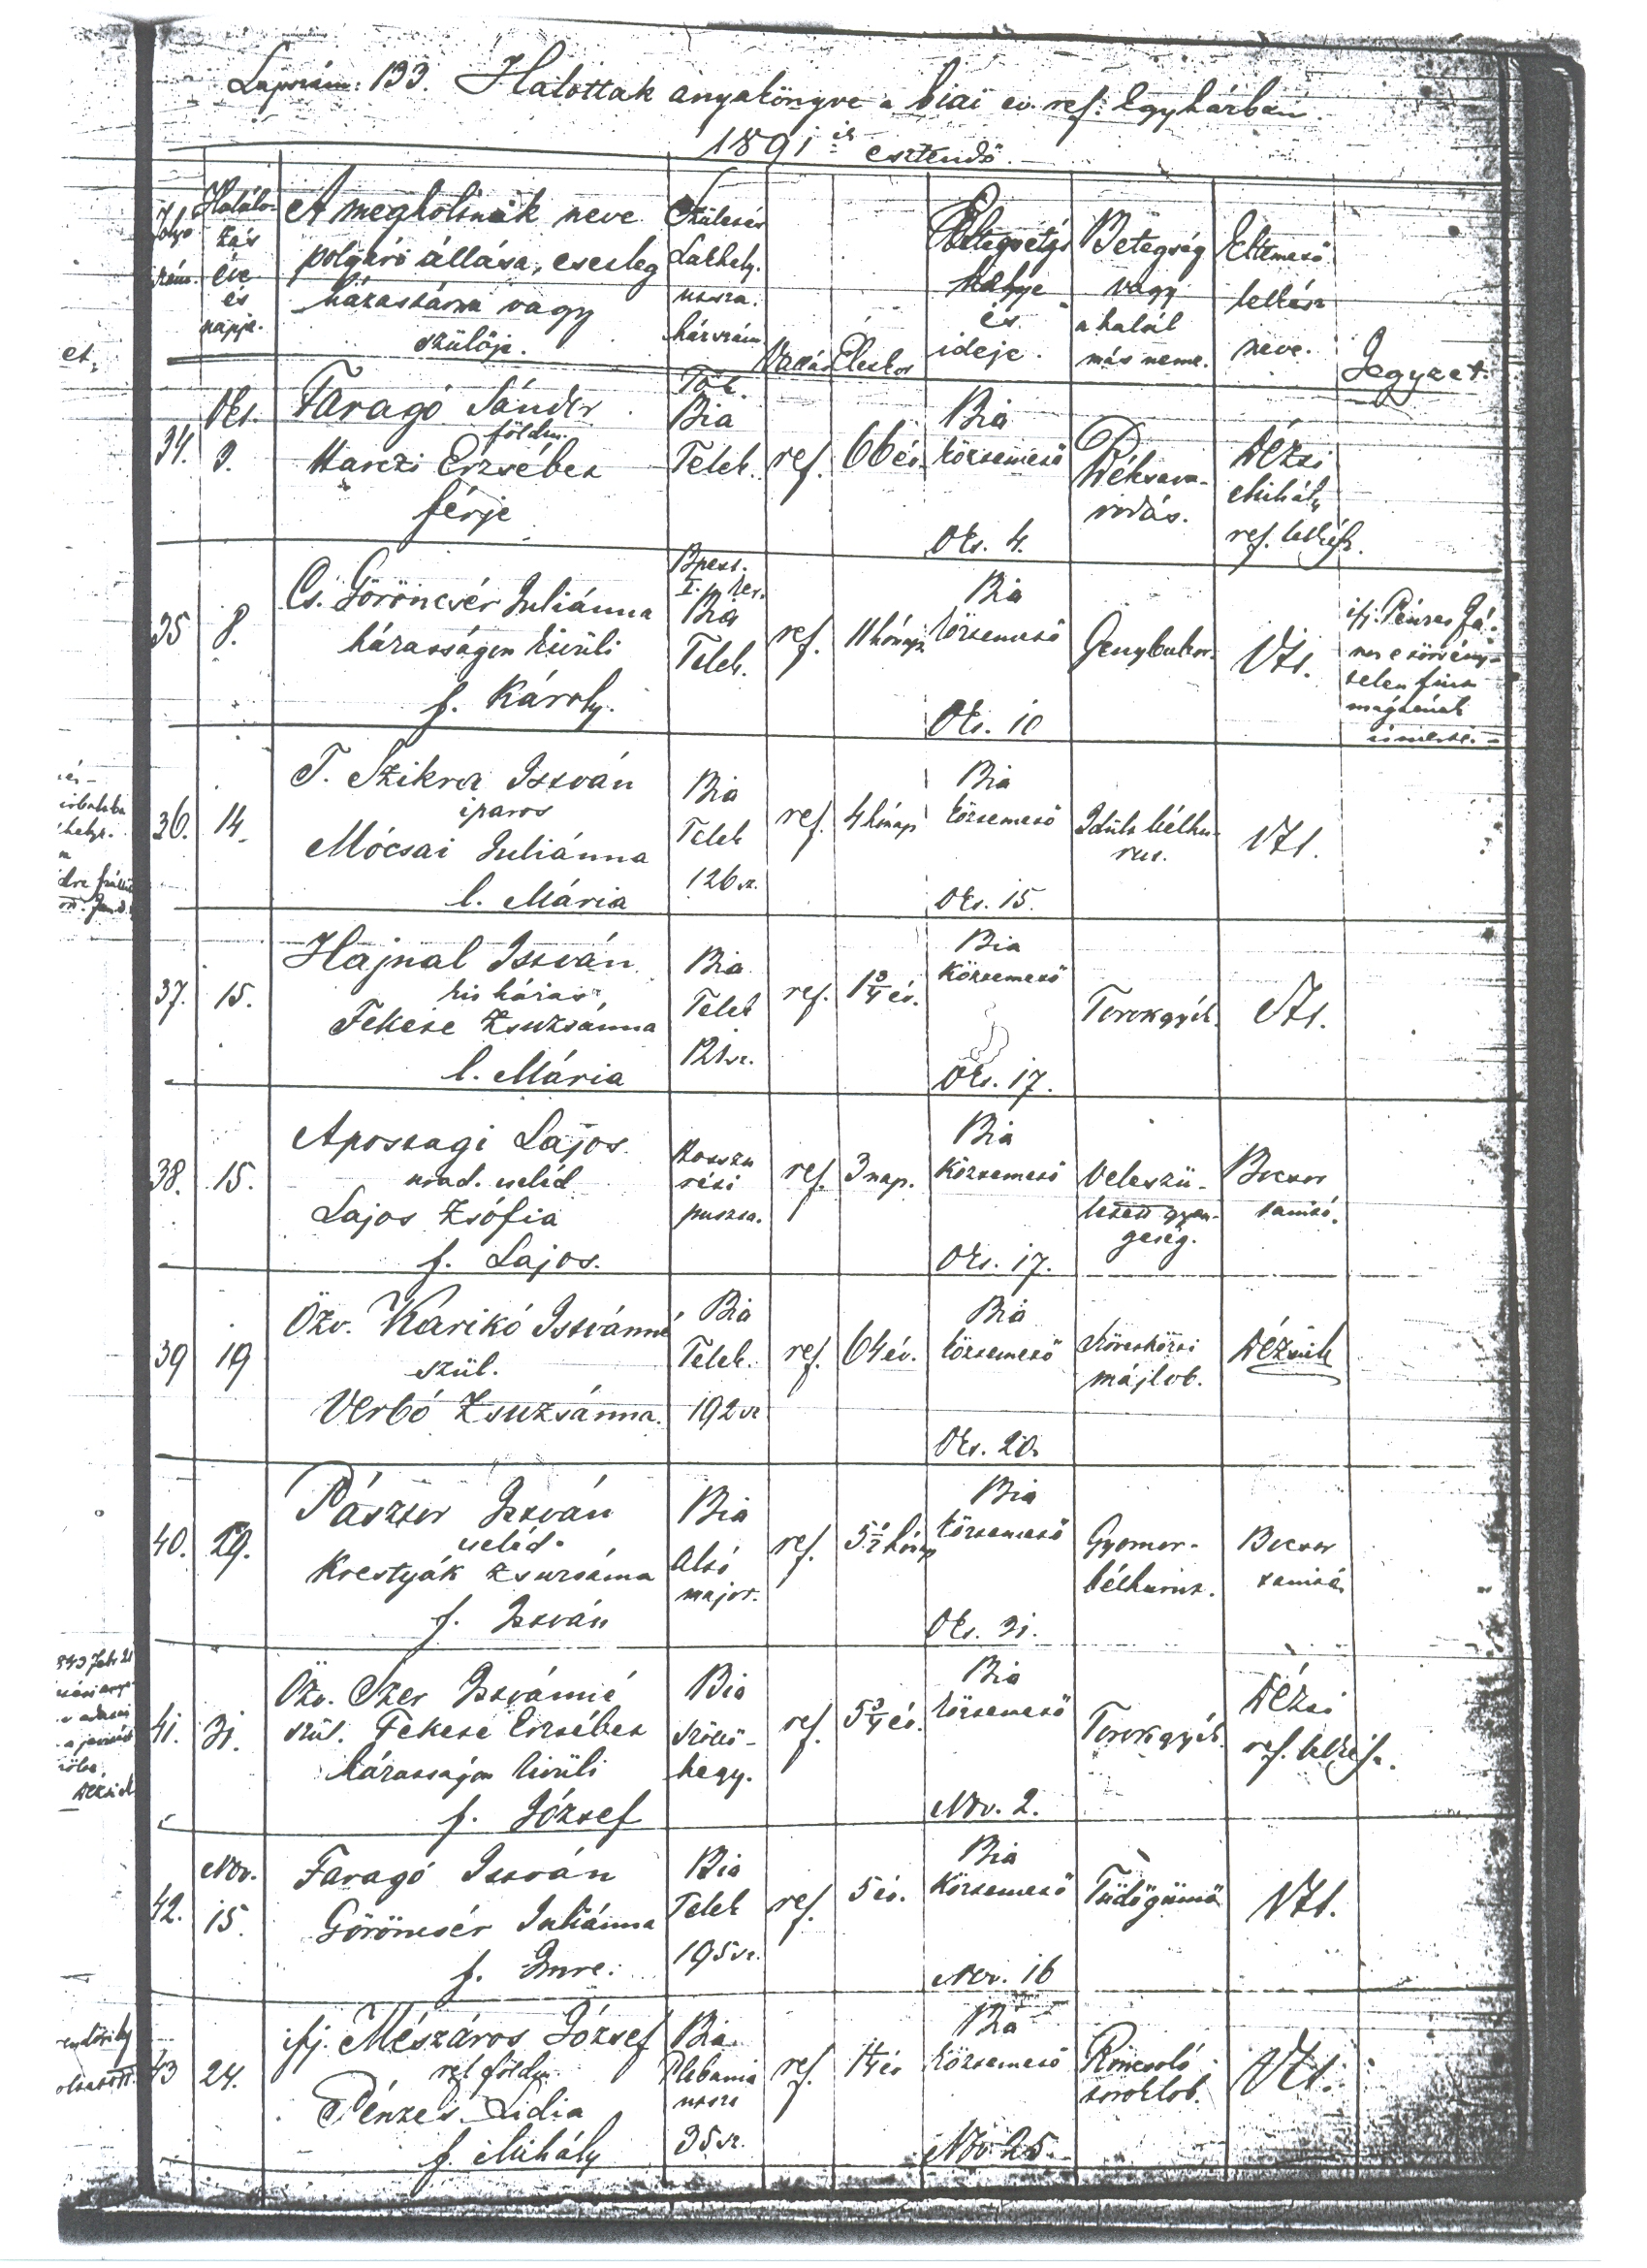 Lapszám: 133. Halottak anyakönyve a biai ev. ref. Egyházban.
1891 ik esztendő.
Folyó szám.
Halálozás éve és napja.
A megholtnak neve
polgári állása, esetleg
házastársa vagy
szülője.
Születés
Lakhely.
utcza.
házszám
Vallás
Életkor
helye
és
ideje.
Betegség
vagy
a halál
más neme.
Eltemető
lelkész
neve.
Jegyzet.
34.
Okt.
9.
Faragó Sándor
földm.
Harczi Erzsébet
férje
Bia
Telek.
ref.
66 év.
Bia
köztemető
Okt. 4.
Dézsi
Mihály
ref. lelkész.
35
8.
Cs. Göröncsér Juliánna
házasságon kivüli
f. Károly.
Bpest.
I. ker.
Bia
Telek.
ref.
11 hónap
Bia
köztemető
Okt. 10
Ifj. Pénzes Já-
nos e törvény-
telen fiút
magáénak
ismerte. -
36.
14.
T. Szikra István
iparos
Mócsai Juliánna
l. Mária
Bia
Telek
126 sz.
ref.
4 hónap
Bia
köztemető
Okt. 15.
Idült bélhu-
rut.
37.
15.
Hajnal István
kis házas
Fekete Zsuzsánna
l. Mária
Bia
Telek
121 sz.
ref.
1 3/4 év.
Bia
Köztemető
Okt. 17.
Torokgyík.
38.
15.
Apostagi Lajos.
urad. cseléd
Lajos Zsófia
f. Lajos.
puszta.
ref.
3 nap.
Bia
Köztemető
Okt. 17.
Veleszü-
letett gyen-
geség.
Bocsor
tanító.
39
19
Özv. Karikó Istvánné
szül.
Verbó Zsuzsánna.
Bia
Telek.
192 sz
ref.
64 év.
Bia
köztemető
Okt. 20.
májlob.
40.
29.
Pásztor István
cseléd.
Krestyák Zsuzsánna
f. István
Bia
Alsó
major.
ref.
5 1/2 hónap
Bia
köztemető
Okt. 31.
Gyomor-
bélhurut.
Bocsor
tanító
41.
31.
Özv. Szer Istvánné
szül. Fekete Erzsébet
házasságon kivüli
f. József
Bia
Szőlő-
hegy.
ref.
5 3/4 év.
Bia
köztemető
Nov. 2.
Torokgyík.
Dézsi
ref. lelkész.
42.
Nov.
15.
Faragó István
Göröncsér Juliánna
f. Imre.
Bia
Telek
195 sz.
ref.
5 év.
Bia
Köztemető
Nov. 16
Tüdőgümő
43
24.
ifj. Mészáros József
földm.
Pénzes Lidia
f. Mihály
Bia
Plebania
utcza
35 sz.
ref.
Bia
köztemető
Nov. 25.
Roncsoló
toroklob.